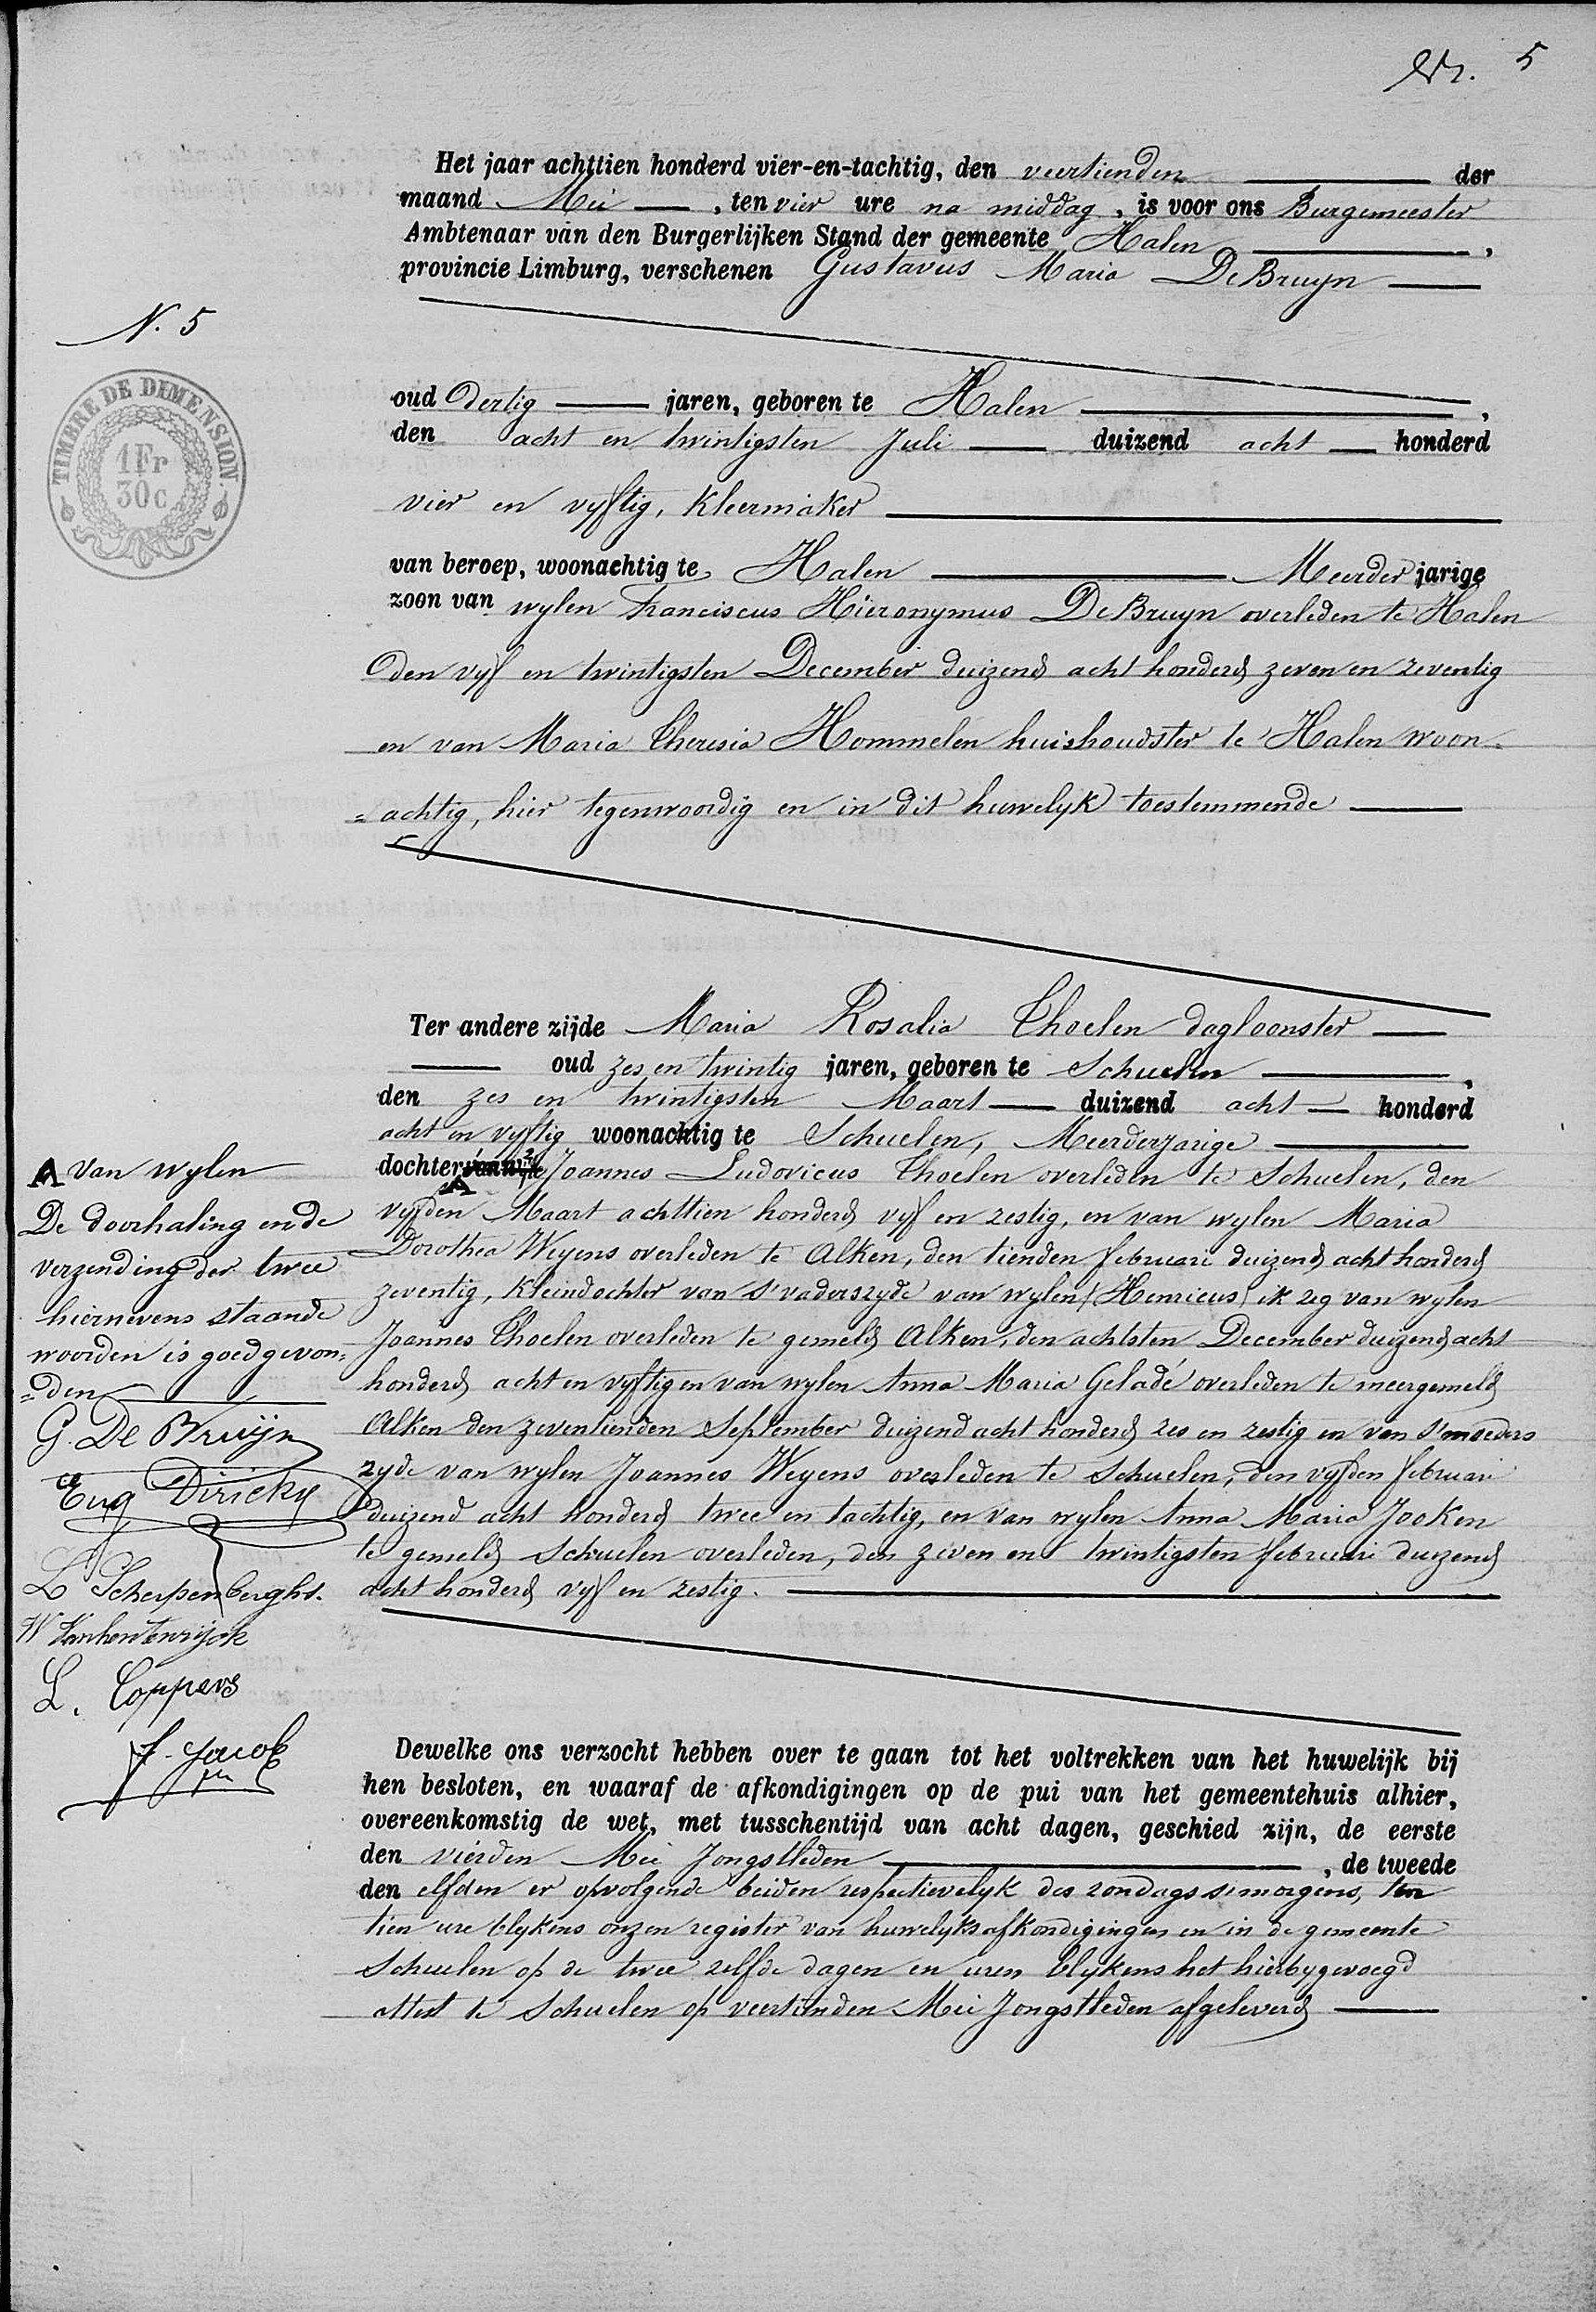 Nr. 5
Het jaar achttien honderd vier-en-tachtig, den veertienden der
maand Mei, ten vier ure na middag, is voor ons Burgemeester
Ambtenaar van den Burgerlijken Stand der gemeente Halen,
provincie Limburg, verschenen Gustavus Maria De Bruyn
N. 5
TIMBRE DE DIMENSION.
1Fr
30c
oud dertig jaren, geboren te Halen,
den acht en twintigsten Juli duizend acht honderd
vier en vyftig, Kleermaker
van beroep, woonachtig te Halen Meerder jarige
zoon van wylen Franciscus Hieronymus De Bruyn overleden te Halen
den vyf en twintigsten December duizend acht honderd zeven en zeventig
en van Maria Theresia Hommelen huishoudster te Halen woon-
=achtig, hier tegenwoordig en in dit huwelyk toestemmende
Ter andere zijde Maria Rosalia Thoelen dagloonster
oud zes en twintig jaren, geboren te Schuelen,
den zes en twintigsten Maart duizend acht honderd
acht en vyftig woonachtig te Schuelen, Meerderjarige
dochter Joannes Ludovicus Thoelen overleden te Schuelen, den
vyfden Maart achttien honderd vyf en zestig, en van wylen Maria
Dorothea Weyens overleden te Alken, den tienden februari duizend acht honderd
zeventig, Kleindochter van s'vaderszyde van wylen (Henricus) ik zeg van wylen
Joannes Thoelen overleden te gemeld Alken, den achtsten December duizend acht
honderd acht en vyftig en van wylen Anna Maria Geladé overleden te meergemeld
Alken den zeventienden September duizend acht honderd zes en zestig en van s'moeders
zyde van wylen Joannes Weyens overleden te Schuelen, den vyfden februari
duizend acht honderd twee en tachtig, en van wylen Anna Maria Jooken
te gemeld Schuelen overleden, den zeven en twintigsten februari duizend
acht honderd vyf en zestig.
van wylen
De doorhaling en de
verzending der twee
hiernevens staande
woorden is goedgevon=
=den
G. De Bruijn
Eug Dirickx
L Scherpenberghs.
W Vanhentenrijck
L. Coppers
J. Jacob
Dewelke ons verzocht hebben over te gaan tot het voltrekken van het huwelijk bij
hen besloten, en waaraf de afkondigingen op de pui van het gemeentehuis alhier,
overeenkomstig de wet, met tusschentijd van acht dagen, geschied zijn, de eerste
den vierden Mei Jongstleden, de tweede
den elfden er opvolgende beiden respectievelyk des zondags s'morgens, ten
tien ure blykens onzen register van huwelyksafkondigingen en in de gemeente
Schuelen op de twee zelfde dagen en uren blykens het hierbygevoegd
attest te Schuelen op veertienden Mei Jongstleden afgeleverd